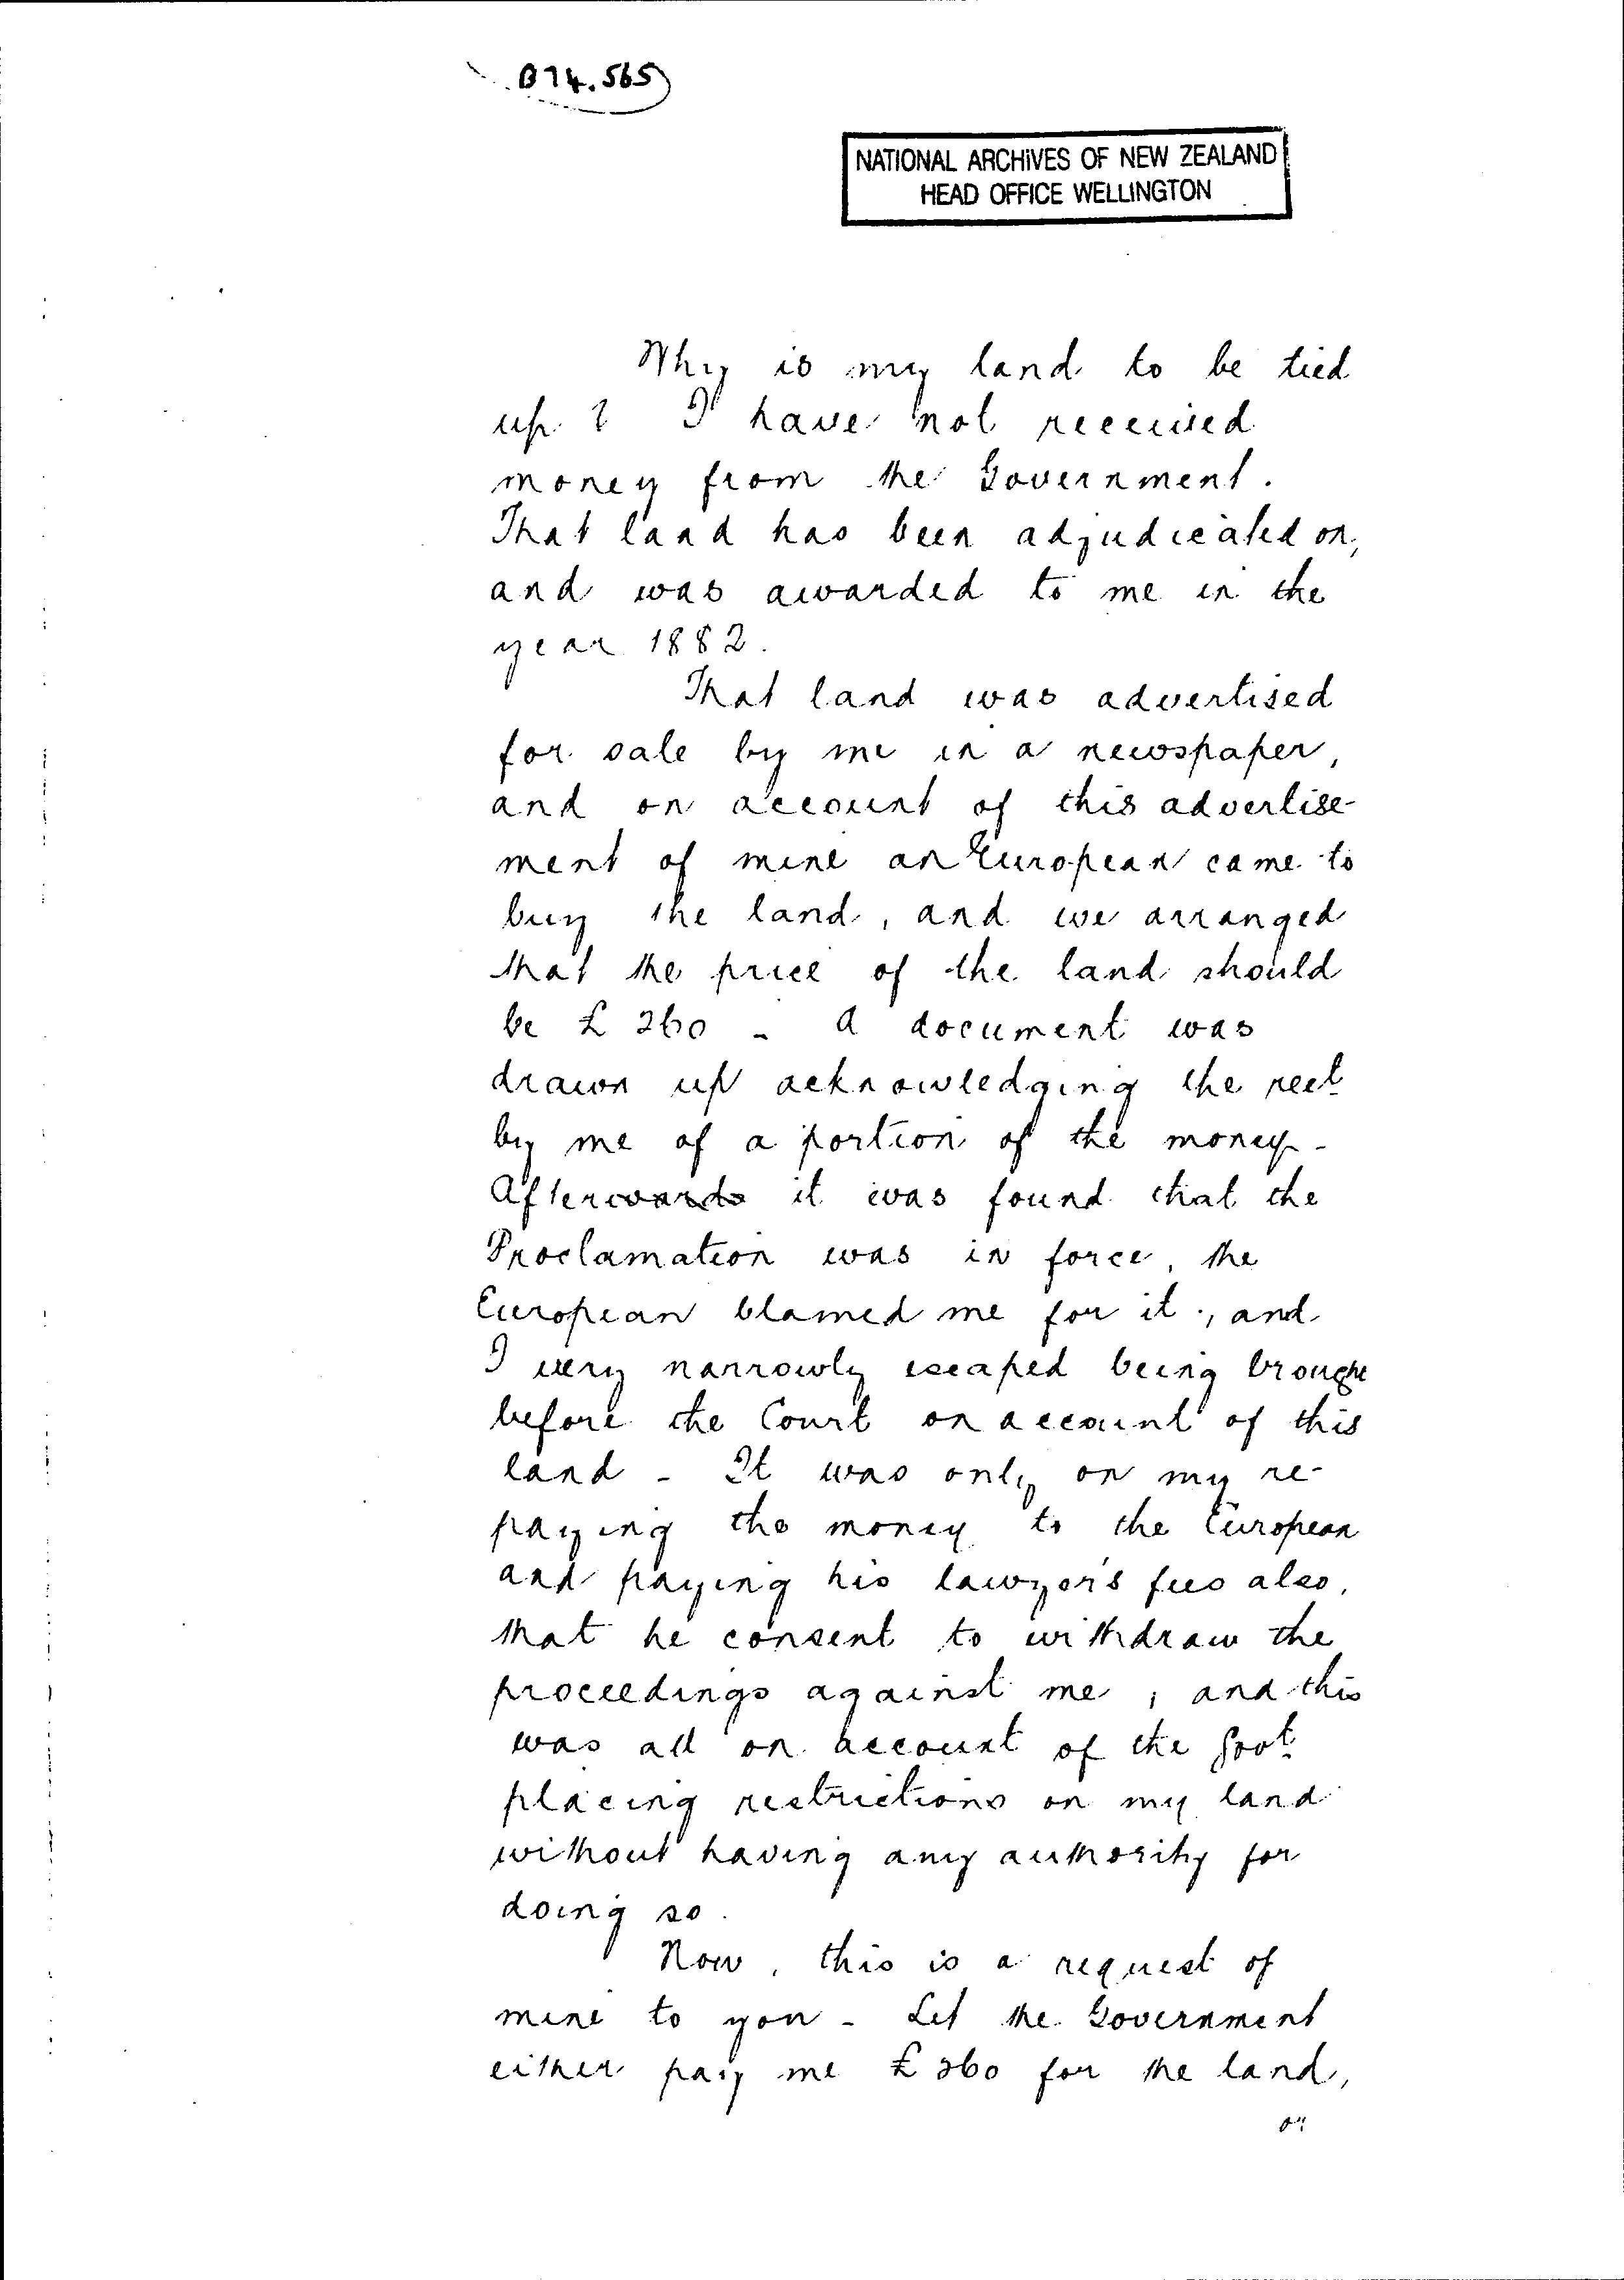 B74.565
NATIONAL ARCHIVES OF NEW ZEALAND
HEAD OFFICE WELLINGTON
Why is my land to be tied
up ? I have not received
money from the Government.
That land has been adjudicated on,
and was awarded to me in the
year 1882.
That land was advertised
for sale by me in a newspaper,
and on account of this advertise-
ment of mine an European came to
buy the land, and we arranged
that the price of the land should
be £ 260 - A document was
drawn up acknowledging the rect
by me of a portion of the money -
Afterwards it was found that the
Proclamation was in force, the
European blamed me for it, and
I very narrowly escaped being brought
before the Court on account of this
land - It was only on my re-
paying the money to the European
and paying his lawyer's fees also,
that he consent to withdraw the
proceedings against me, and this
was all on account of the Govt
placing restrictions on my land
without having any authority for
doing so.
Now, this is a request of
mine to you - Let the Government
either pay me £260 for the land,
or